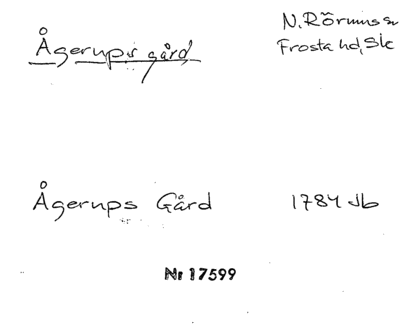 Ågerups gård
N. Rörums sn
Frosta hd, Sk
Ågerups Gård 1784 Jb
Nr 17599